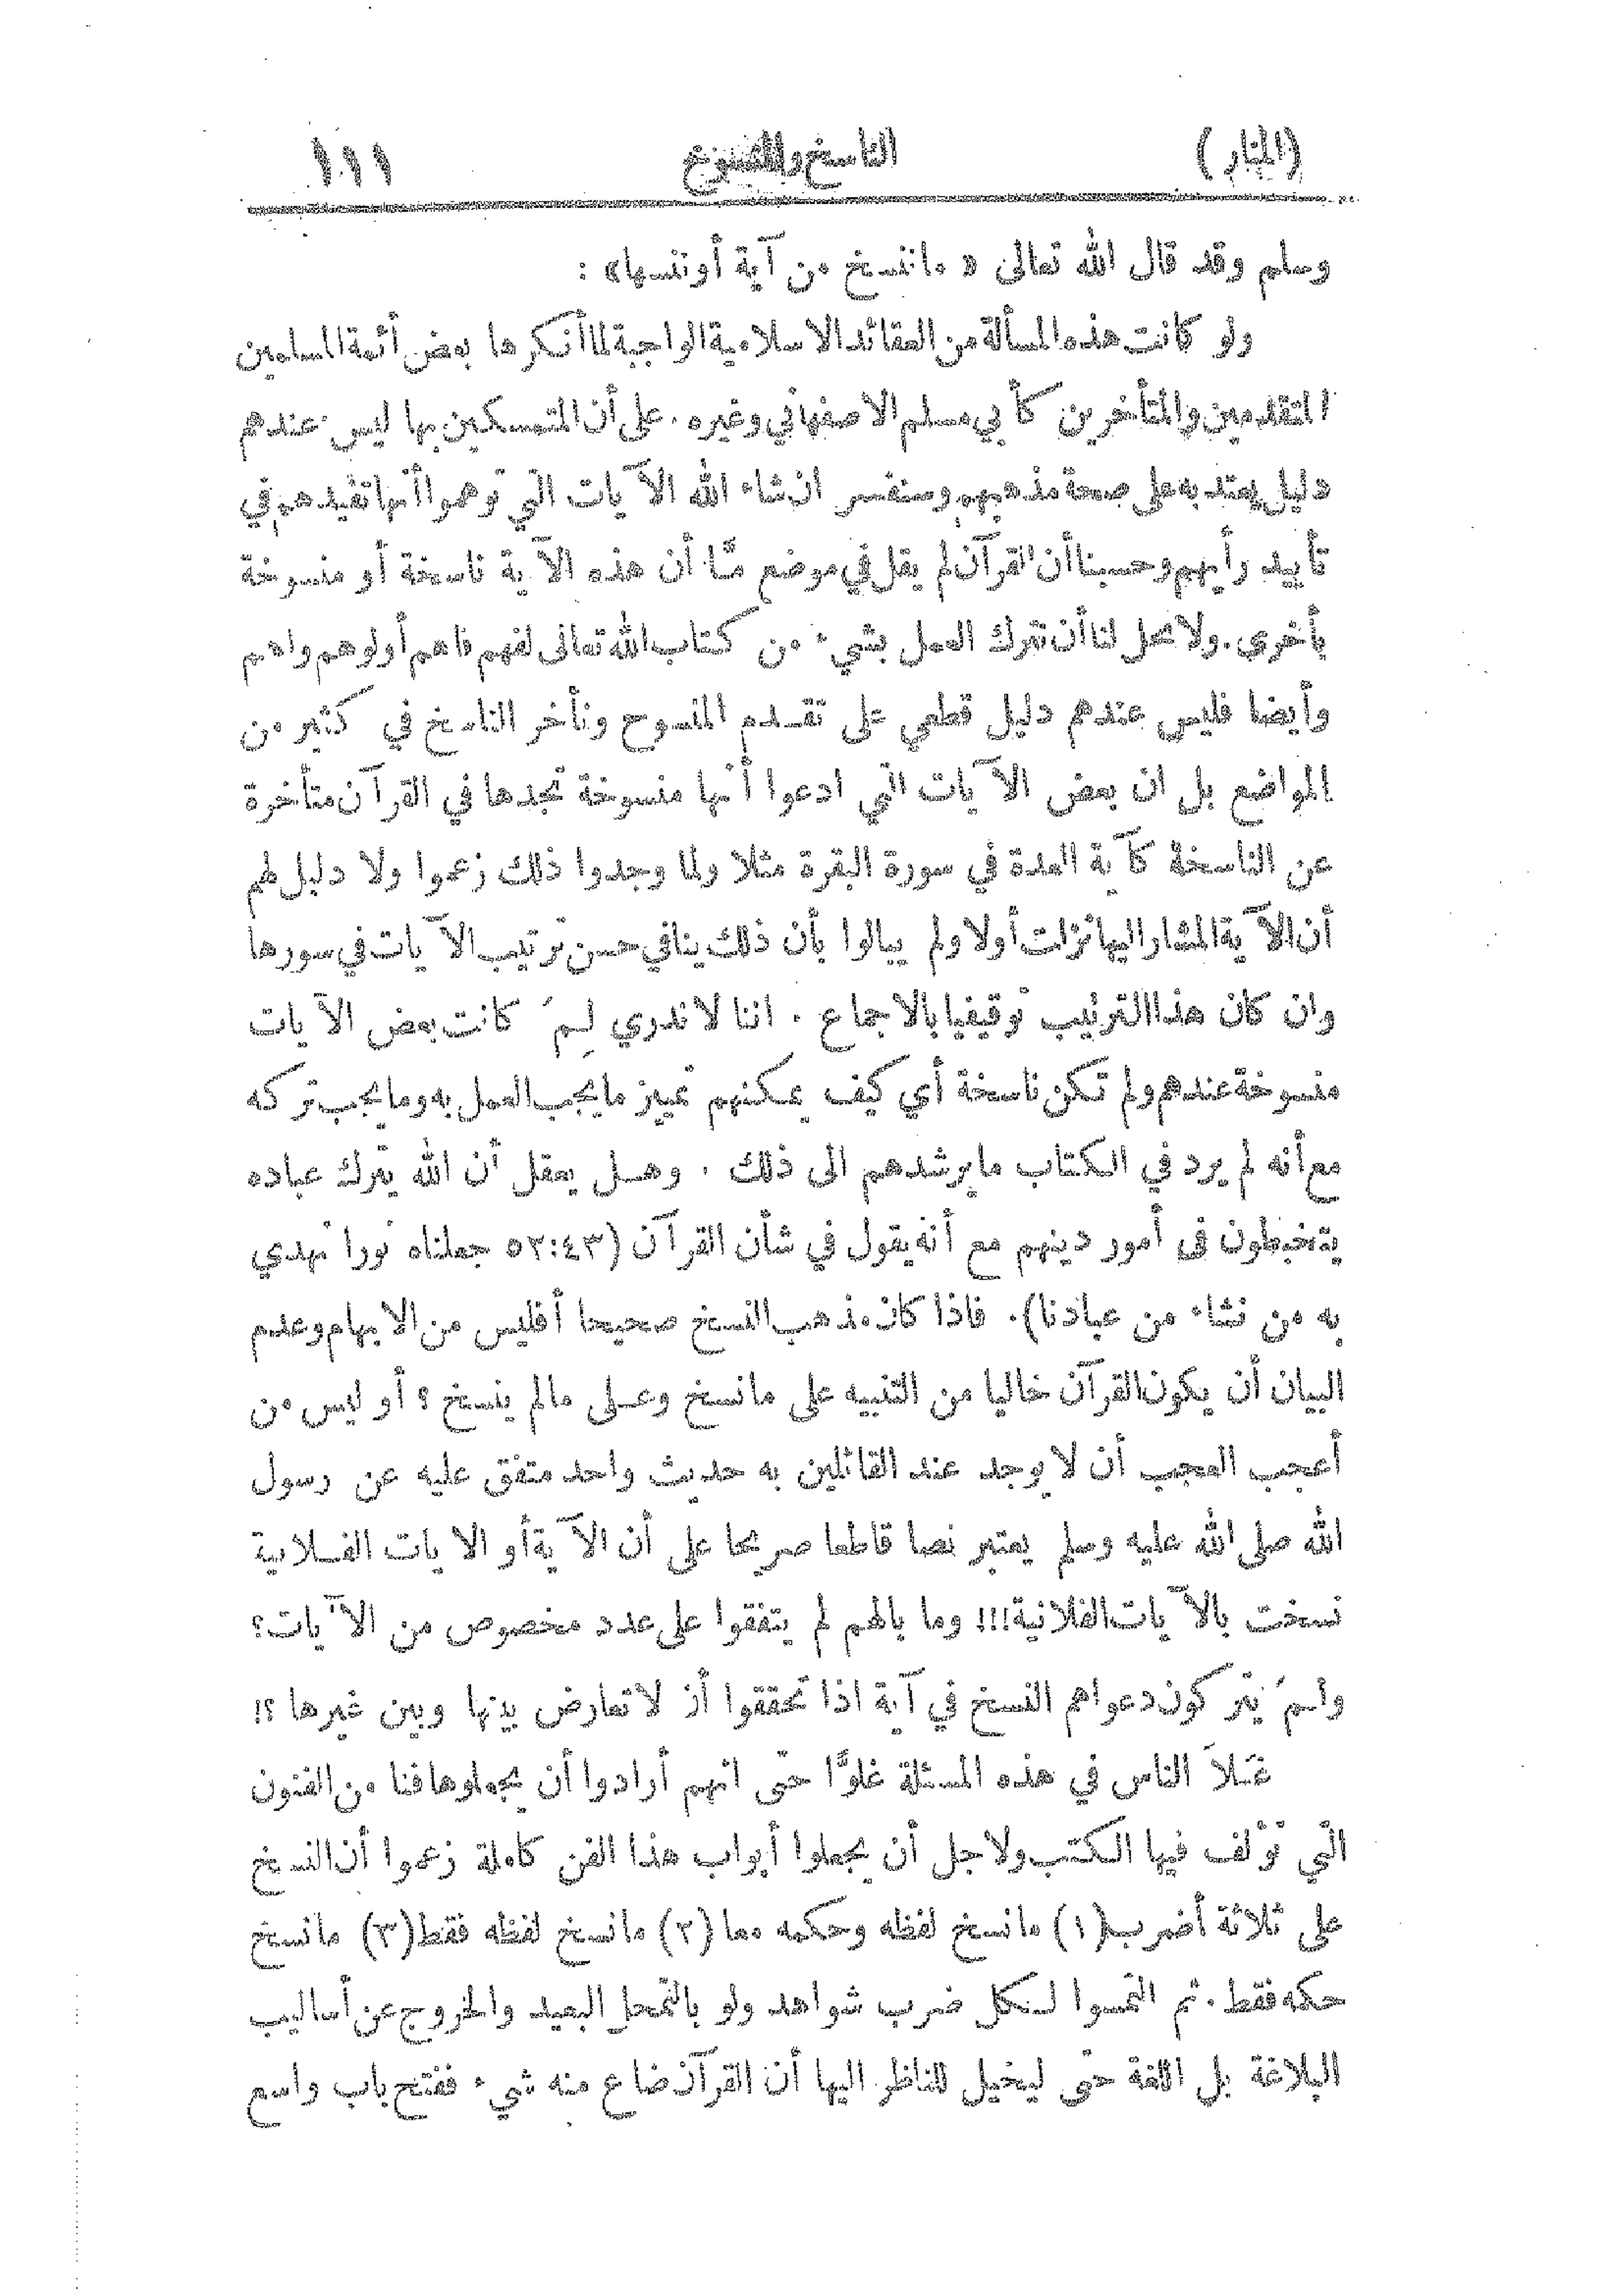 (المنار) الناسخ والمنسوخ ١١١
وسلم وقد قال الله تعالى « ماننسخ من آية أو ننسها» :
ولو كانت هذه المسألة من العقائد الاسلامية الواجبة لما أنكرها بعض أئمة المسلمين
المتقدمين والمتأخرين كأبي مسلم الاصفهاني وغيره . على أن المتمسكين بها ليس عندهم
دليل يعتد به على صحة مذهبهم وسنفسر ان شاء الله الآيات التي توهموا أنها تفيدهم في
تأييد رأيهم وحسبنا أن القرآن لم يقل في موضع مّا أن هذه الآية ناسخة أو منسوخة
بأخرى . ولا يحل لنا أن نترك العمل بشيء من كتاب الله تعالى لفهم فاهم أو لوهم واهم
وأيضا فليس عندهم دليل قطعي على تقدم المنسوخ وتأخر الناسخ في كثير من
المواضع بل ان بعض الآيات التي ادعوا أنها منسوخة تجدها في القرآن متأخرة
عن الناسخة كآية العدة في سورة البقرة مثلا ولما وجدوا ذلك زعموا ولا دليل لهم
أن الآية المشار اليها نزلت أولا ولم يبالوا بأن ذلك ينافي حسن ترتيب الآيات في سورها
وان كان هذا الترتيب توقيفيا بالاجماع . اننا لا ندري لِمَ كانت بعض الآيات
منسوخة عندهم ولم تكن ناسخة أي كيف يمكنهم تمييز ما يجب العمل به وما يجب تركه
مع أنه لم يرد في الكتاب ما يرشدهم الى ذلك . وهل يعقل أن الله يترك عباده
يتخبطون في أمور دينهم مع أنه يقول في شأن القرآن (٥٢:٤٣ جعلناه نورا نهدي
به من نشاء من عبادنا). فاذا كان مذهب النسخ صحيحا أفليس من الابهام وعدم
البيان أن يكون القرآن خاليا من التنبيه على مانسخ وعلى مالم ينسخ ؟ أو ليس من
أعجب العجب أن لا يوجد عند القائلين به حديث واحد متفق عليه عن رسول
الله صلى الله عليه وسلم يعتبر نصا قاطعا صريحا على أن الآية أو الآيات الفلانية
نسخت بالآيات الفلانية!!! وما بالهم لم يتفقوا على عدد مخصوص من الآيات؟
ولمَ يتركون دعواهم النسخ في آية اذا تحققوا أن لا تعارض بينها وبين غيرها ؟!
غلاَ الناس في هذه المسئلة غلوًّا حتى انهم أرادوا أن يجعلوها فنا من الفنون
التي تؤلف فيها الكتب ولاجل أن يجعلوا أبواب هذا الفن كاملة زعموا أن النسخ
على ثلاثة أضرب (١) مانسخ لفظه وحكمه معا (٢) مانسخ لفظه فقط (٣) مانسخ
حكمه فقط . ثم التمسوا لكل ضرب شواهد ولو بالتمحل البعيد والخروج عن أساليب
البلاغة بل اللغة حتى ليخيل للناظر اليها أن القرآن ضاع منه شيء ففتح باب واسع